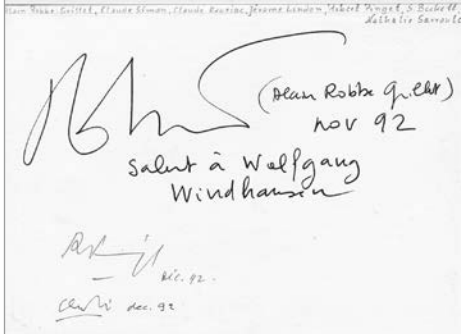 Alain Robbe-Grillet, Claude Simon, Claude Mauriac, Jérôme Lindon, Robert Pinget, S. Beckett,
Nathalie Sarraute
(Alain Robbe Grillet)
nov 92
Salut à Wolfgang
Windhausen
déc. 92.
dec. 92